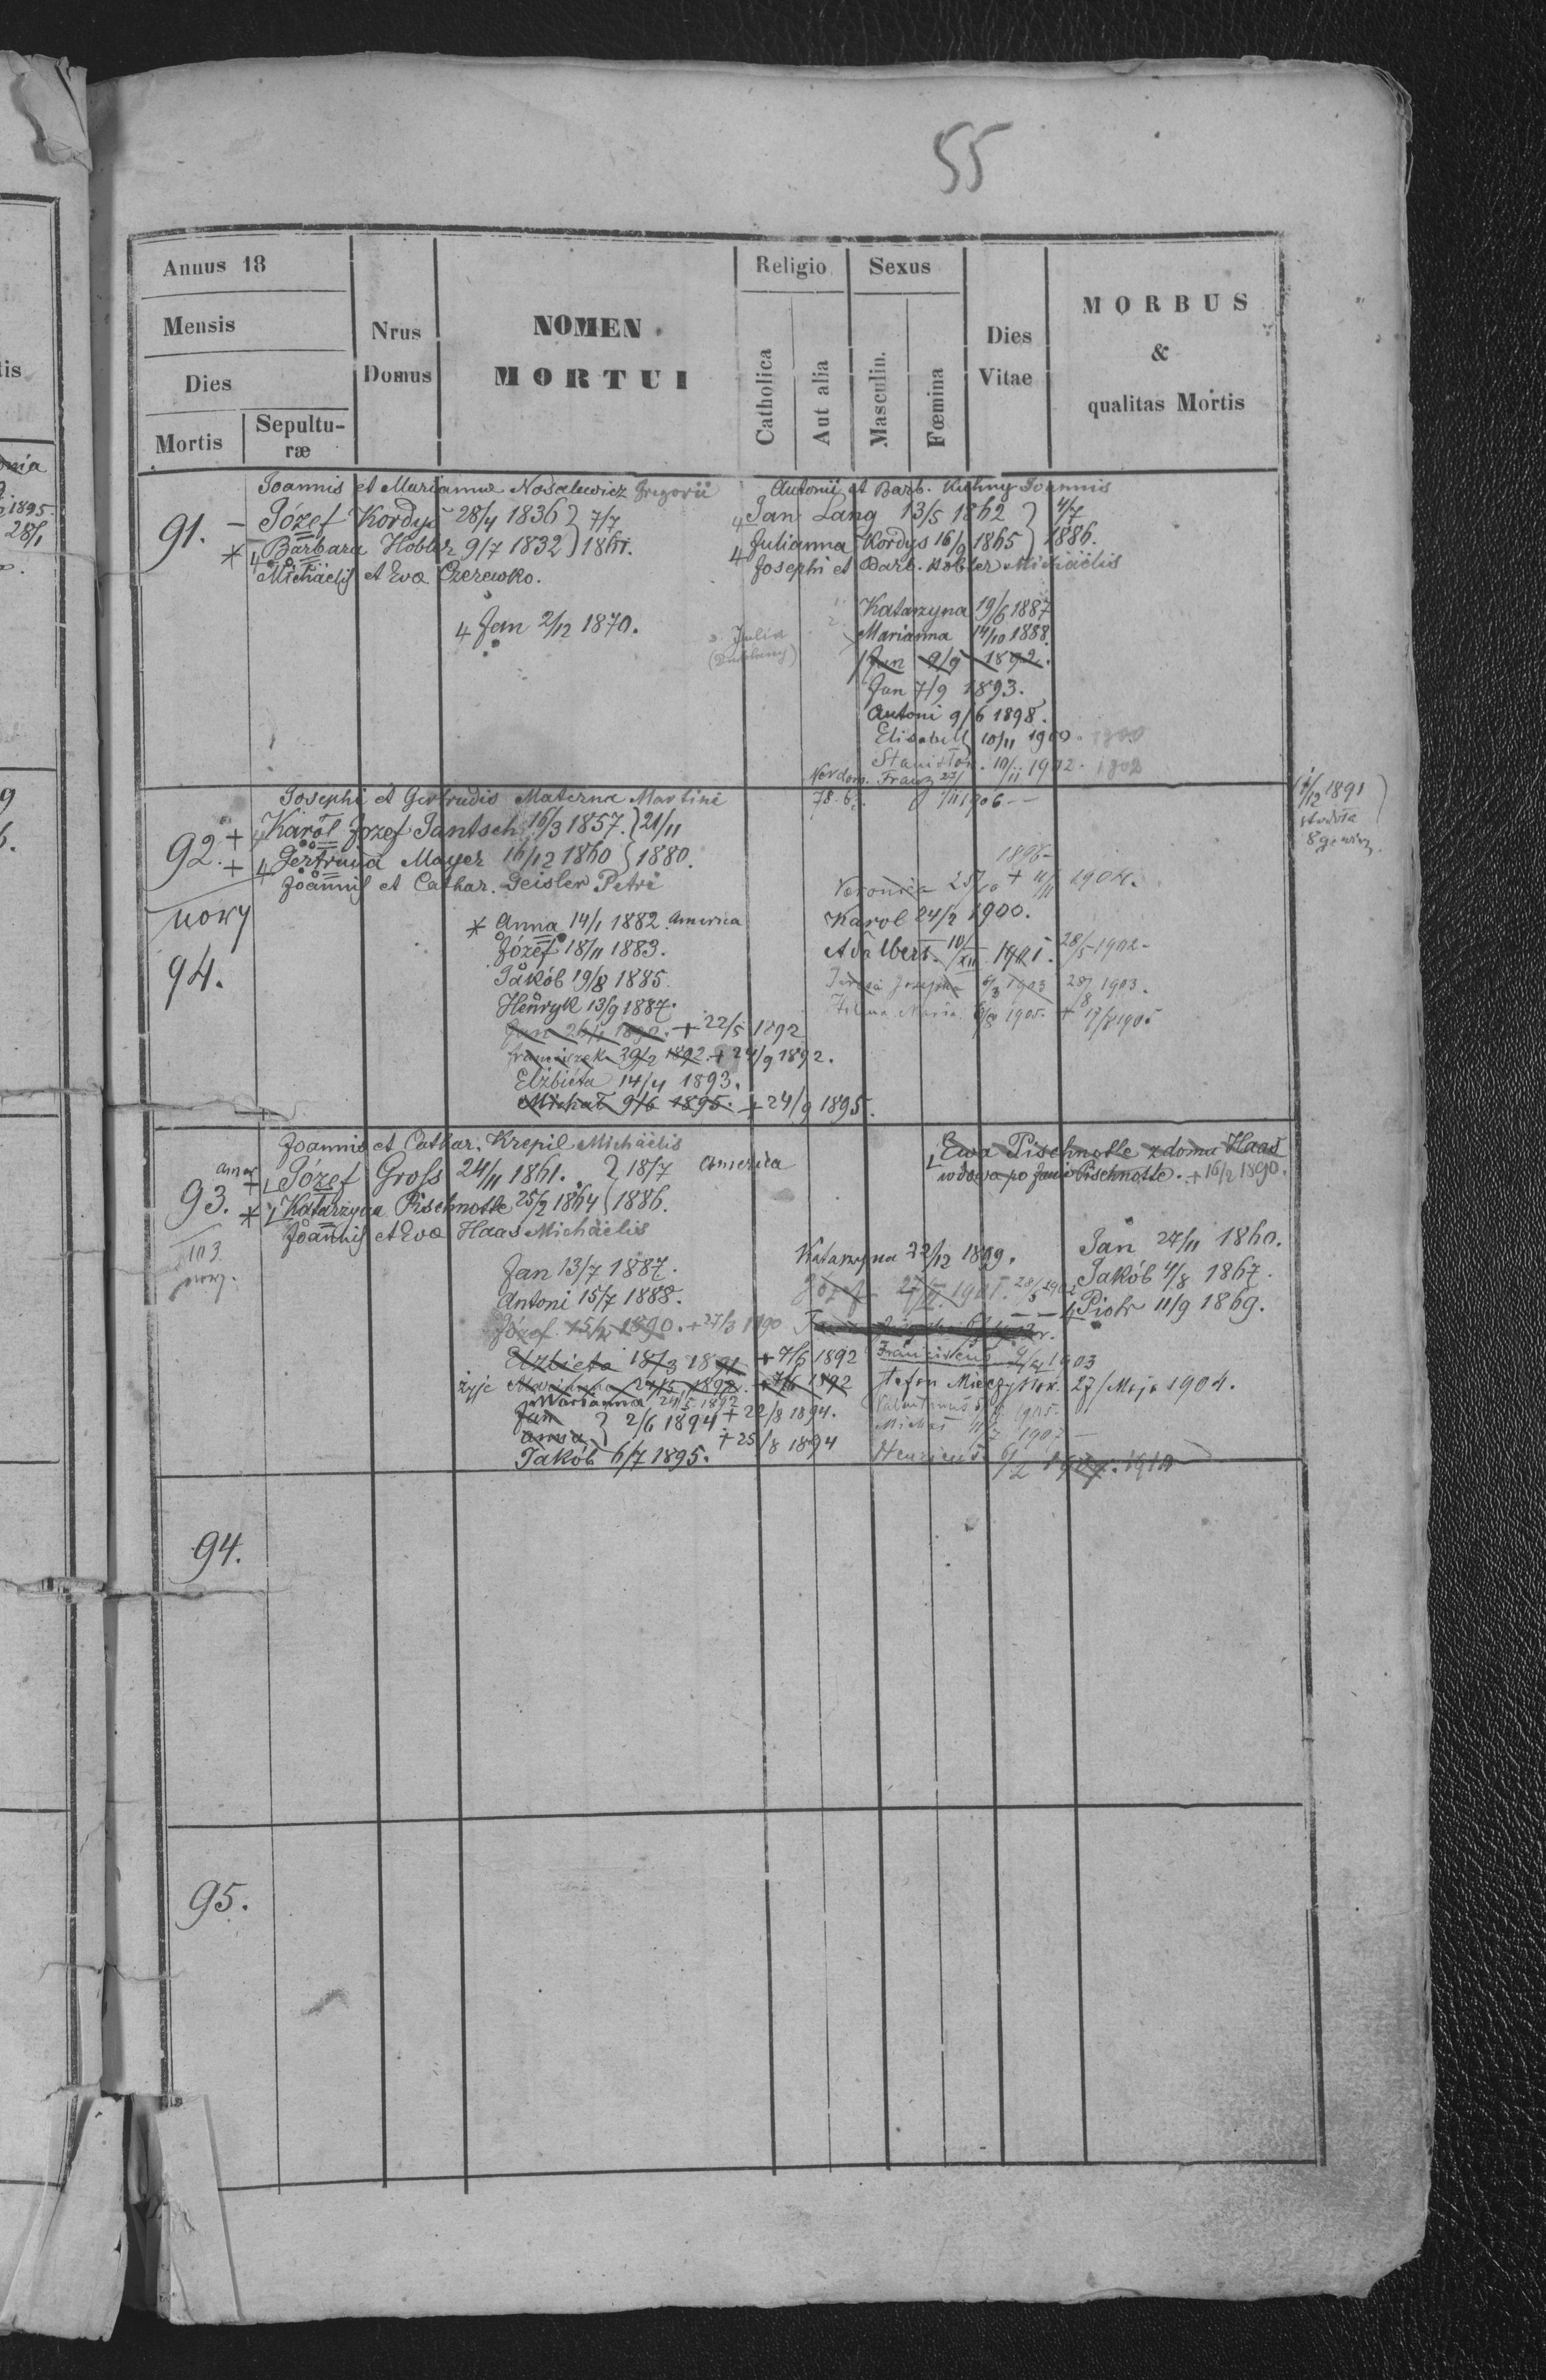 55
Annus 18
Mensis
Dies
Mortis
Sepulturæ
Nrus Domus
NOMEN MORTUI
Religio
Catholica
Aut alia
Sexus
Masculin.
Fœmina
Dies Vitae
MORBUS & qualitas Mortis
Joannis et Mariannæ Nosalewicz Gregorii
91. Józef Kordyś 28/4 1836 } 7/7
Barbara Hobler 9/7 1832 } 1861.
Michäelis et Evæ Czerewko.
4 Jan 2/12 1870.
Julia
Antonii et Barb. Kuhny Joannis
4 Jan Lang 13/5 1862 } 4/7
4 Julianna Kordys 16/9 1865 } 1886.
Josephi et Barb. Kobler Michäelis
Katarzyna 19/6 1887
Marianna 14/10 1888.
Jan 9/9 1892.
Jan 7/9 1893.
Antoni 9/6 1898.
Elisabeth 10/11 1900. 1900
Stanisław. 10/11 1902. 1902
Franz 27/
78. 1906
Josephi et Gertrudis Materna Martini
92. + Karol Jozef Jantsch 16/3 1857. } 21/11
+ 4 Gertruda Mayer 16/12 1860 } 1880.
Joannis et Cathar. Geisler Petri
nowy
94.
* Anna 14/1 1882. America
Józef 18/11 1883.
Jakób 19/8 1885.
Henryk 13/9 1887.
Jan 1890. + 22/5 1892
Franciszek 29/2 1892. + 24/9 1892.
Elżbieta 14/4 1893.
Michał 9/6 1895. + 24/9 1895.
1898
Veronica + 11/11 1904.
Karol 24/2 1900.
Adalbert. 10/XII 1901. 28/5 1902
Josepha 1903 28/8 1903.
Maria 1905. + 17/8 1905
12 1891
Joannis et Cathar. Krepil Michäelis
amer
93. Józef Gross 24/11 1861. } 18/7 America
* Katarzyna Pischnotte 25/2 1864 } 1886.
Joannis et Evæ Haas Michäelis
103
nowy.
Ewa Pischnotte z domu Haas
wdowa po Janie Pischnotte. + 16/2 1890.
Jan 13/7 1887.
Antoni 15/7 1888.
Józef. 15/2 1890. + 27/3 1890
Elżbieta 18/3 1891 + 7/6 1892
żyje Marianna 24/5 1892. + 7/6 1892
Marianna 24/5 1892
Jan } 2/6 1894 + 22/8 1894.
Anna } + 25/8 1894
Jakób 6/7 1895.
Katarzyna 22/12 1899.
Józef 1901. 28/5 1902
Franciscus 1903
Stefan Mieczysław. 27/Maja 1904.
1905.
Michał 1907
Henricus 6/2 1910
Jan 27/11 1860.
Jakób 4/8 1867.
4 Piotr 11/9 1869.
94.
95.